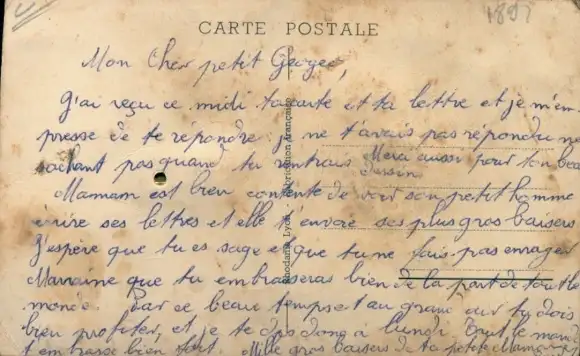 1897
CARTE POSTALE
Mon Cher petit Georges,
J'ai reçu ce midi ta carte et ta lettre et je m'em
presse de te répondre. je ne t'avais pas répondu ne
sachant pas quand tu rentrais Merci aussi pour ton beau
dessin
Maman est bien contente de voir son petit homme
écrire ses lettres et elle t'envoie ses plus gros baisers
J'espère que tu es sage et que tu ne fais pas enrager
Marraine que tu embrasseras bien de la part de tout le
monde. Par ce beau temps et au grand air tu dois
bien profiter, et je te dis donc à lundi tout le monde
t'embrasse bien fort. Mille gros baisers de ta petite Maman
Rhodania Lyon - Fabrication française